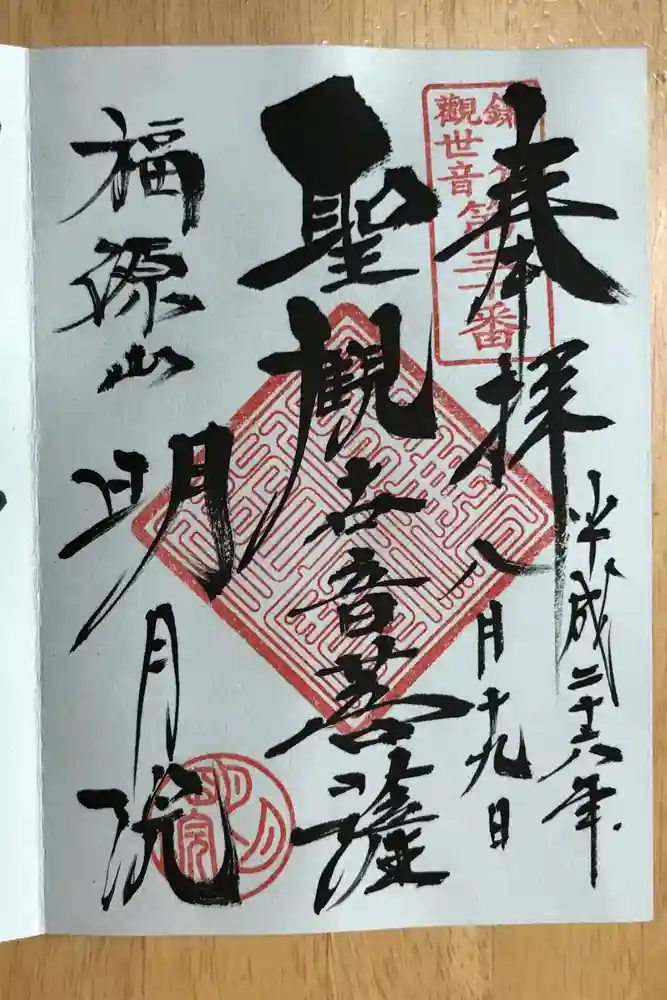 奉拝
平成二十六年
八月十九日
觀世音第三十番
聖観世音菩薩
福源山
明月院